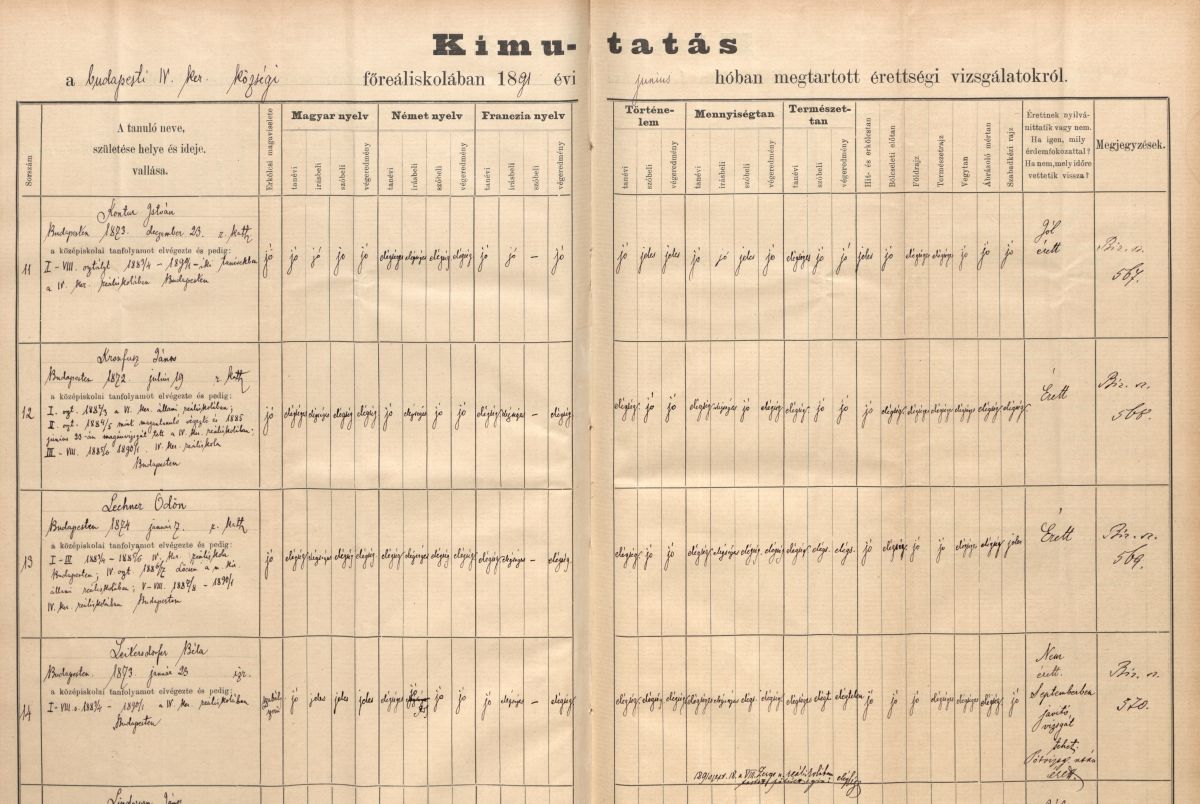 Kimu- tatás
a budapesti IV. ker. községi főreáliskolában 1891 évi junius hóban megtartott érettségi vizsgálatokról.
Sorszám
A tanuló neve,
születése helye és ideje,
vallása.
Erkölcsi magaviselete
Magyar nyelv
tanévi írásbeli szóbeli végeredmény
Német nyelv
tanévi írásbeli szóbeli végeredmény
Franczia nyelv
tanévi írásbeli szóbeli végeredmény
Történe-
lem
tanévi szóbeli végeredmény
Mennyiségtan
tanévi írásbeli szóbeli végeredmény
Természet-
tan
tanévi szóbeli végeredmény
Hit- és erkölcstan
Bölcseleti előtan
Földrajz
Természetrajz
Vegytan
Ábrázoló mértan
Szabadkézi rajz
Érettnek nyilvá-
níttatik vagy nem.
Ha igen, mily
érdemfokozattal?
Ha nem, mely időre
vettetik vissza?
Megjegyzések.
11
Kontur István
Budapesten 1873. dezember 23. r. kath
a középiskolai tanfolyamot elvégezte és pedig:
I - VIII. osztályt 1883/4 - 1890/1 -iki tanévekben
a IV. ker. reáliskolában Budapesten
jó jó jó jó jó elégséges elégséges elégség elégség jó jó – jó jó jeles jeles jó jó jeles jó elégséges jó jó jeles jó elégséges elégséges jó jó jó
Jól
érett
Biz. sz.
567.
12
Kronfusz János
Budapesten 1872. július 19 r. kath
a középiskolai tanfolyamot elvégezte és pedig:
I. oszt. 1882/3 a VI. ker. állami reáliskolában;
II. oszt. 1884/5 mint magántanuló végezte és 1885
június 23-án magánvizsgát tett a IV. ker. reáliskolában;
III - VIII. 1885/6 1890/1. IV. ker. reáliskola
Budapesten
jó elégséges elégséges elégség elégség jó elégséges jó jó elégség elégséges – elégség elégség jó jó elégséges elégséges jó elégség elégség jó jó jó elégség elégség elégség elégség elégség elégség
Érett
Biz. sz.
568.
13
Lechner Ödön
Budapesten 1874 január 7. r. kath
a középiskolai tanfolyamot elvégezte és pedig:
I - III 1883/4 - 1885/6 IV. ker. reáliskola
Budapesten; IV oszt. 1886/7 Lőcsén a m. kir.
állami reáliskolában; V - VIII. 1887/8 - 1890/1
IV. ker. reáliskolában Budapesten
jó elégség elégséges elégség elégség elégség elégséges elégség elégség elégség elégséges – elégség elégség jó jó elégséges elégséges elégség elégség elégség elégs. elégs. jó elégség jó jó elégs. elégség jeles
Érett
Biz. sz.
569.
14
Leitersdorfer Béla
Budapesten. 1873. január 23 izr.
a középiskolai tanfolyamot elvégezte és pedig:
I - VIII. o. 1883/4 - 1890/1 a IV. ker. reáliskolában
Budapesten
jó jeles jeles jeles elégséges jó jó jó elégséges – elégség elégség elégség elégség elégséges elégséges elégség elégség elégség elégs. elégtelen jó jó jó elégség elégség elégség jó
Nem
érett.
Septemberben
javító
vizsgát
tehet.
Pótvizsg. után
érett.
Biz. sz.
570.